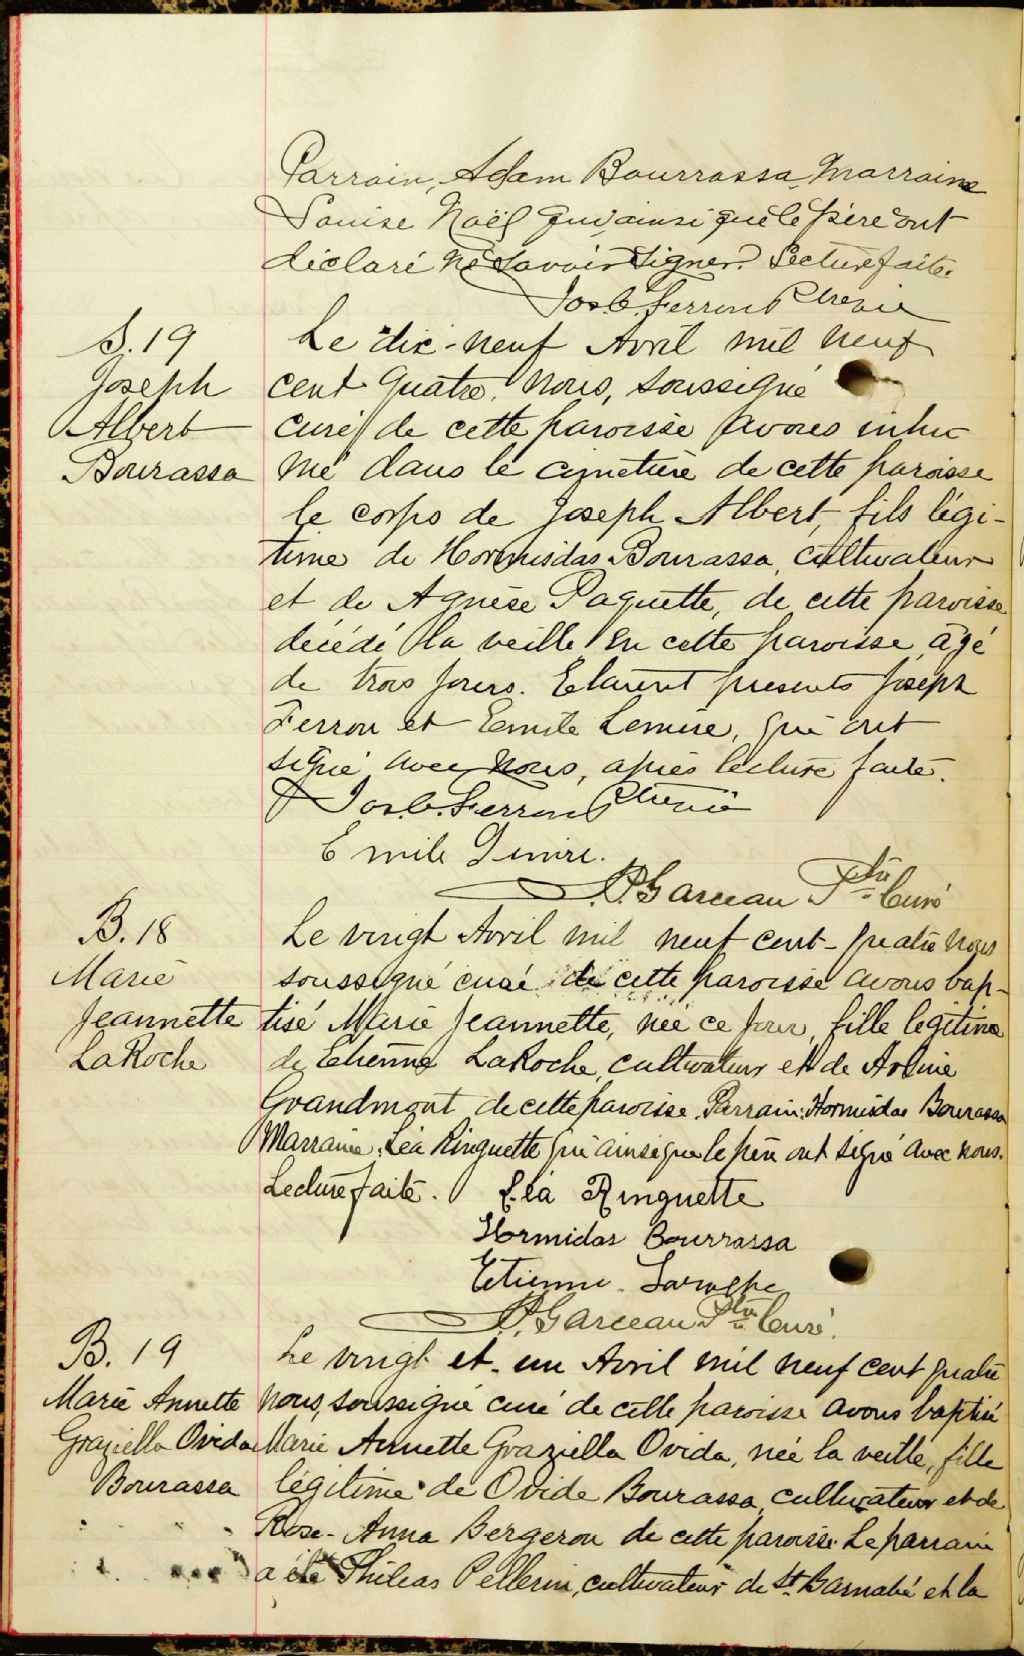 Parrain, Adam Bourrassa, Marraine
Louise Noël qui, ainsi que le père ont
déclaré ne savoir signer. Lecture faite.
Jos. C. Ferron Ptre Vic
S. 19
Joseph
Albert
Bourassa
Le dix-neuf Avril mil neuf
cent quatre, nous, soussigné
curé de cette paroisse avons inhu-
mé dans le cimetière de cette paroisse
le corps de Joseph Albert, fils légi-
time de Hormisdas Bourassa, cultivateur
et de Agnèse Paquette, de cette paroisse
décédé la veille en cette paroisse, âgé
de trois jours. Etaient presents Joseph
Ferron et Emile Lemire, qui ont
signé avec nous, après lecture faite.
Jos. C. Ferron Ptre Vic
Emile Lemire.
Garceau Ptre Curé
B. 18
Marie
Jeannette
LaRoche
Le vingt Avril mil neuf cent-quatre nous
soussigné curé de cette paroisse avons bap-
tisé Marie Jeannette, née ce jour, fille legitime
de Etienne LaRoche, cultivateur et de
Grandmont de cette paroisse. Parrain: Hormisdas Bourassa
Marraine: Léa Ringuette qui ainsi que le père ont signé avec nous.
Lecture faite. Léa Ringuette
Hormidas Bourrassa
Etienne Laroche
Garceau Ptre Curé.
B. 19
Marie Annette
Graziella Ovida
Bourassa
Le vingt et-un Avril mil neuf cent quatre
nous, soussigné curé de cette paroisse avons baptisé
Marie Annette Graziella Ovida, née la veille, fille
légitime de Ovide Bourassa, cultivateur et de
Rose-Anna Bergeron de cette paroisse. Le parrain
a été Philéas Pellerin, cultivateur de St. Barnabé et la